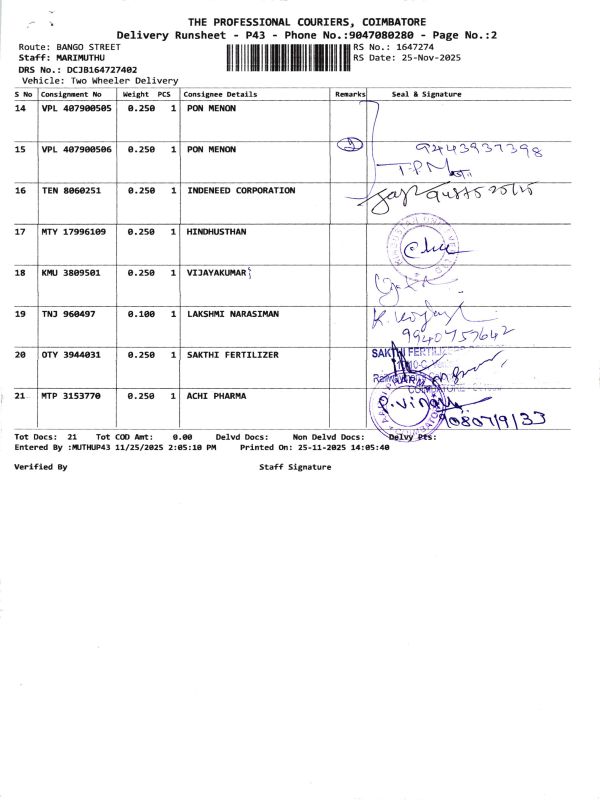 THE PROFESSIONAL COURIERS, COIMBATORE
Delivery Runsheet - P43 - Phone No.:9047080280 - Page No.:2
Route: BANGO STREET RS No.: 1647274
Staff: MARIMUTHU RS Date: 25-Nov-2025
DRS No.: DCJB164727402
Vehicle: Two Wheeler Delivery
S No Consignment No Weight PCS Consignee Details Remarks Seal & Signature
14 VPL 407900505 0.250 1 PON MENON
15 VPL 407900506 0.250 1 PON MENON 9443937398
T-PM
16 TEN 8060251 0.250 1 INDENEED CORPORATION
17 MTY 17996109 0.250 1 HINDHUSTHAN
18 KMU 3809501 0.250 1 VIJAYAKUMAR
19 TNJ 960497 0.100 1 LAKSHMI NARASIMAN
9940757642
20 OTY 3944031 0.250 1 SAKTHI FERTILIZER SAKTHI FERTILIZERS
21 MTP 3153770 0.250 1 ACHI PHARMA
9080719133
Tot Docs: 21 Tot COD Amt: 0.00 Delvd Docs: Non Delvd Docs: Delvy Pts:
Entered By :MUTHUP43 11/25/2025 2:05:10 PM Printed On: 25-11-2025 14:05:40
Verified By Staff Signature